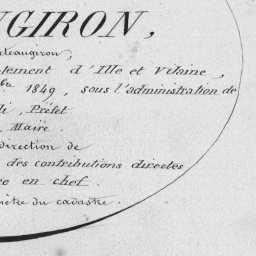 UGIRON,
teaugiron,
tement d'Ille et Vilaine,
bre 1849, sous l'administration de
li, Préfet
, Maire
direction de
des contributions directes
re en chef.
mètre du cadastre.